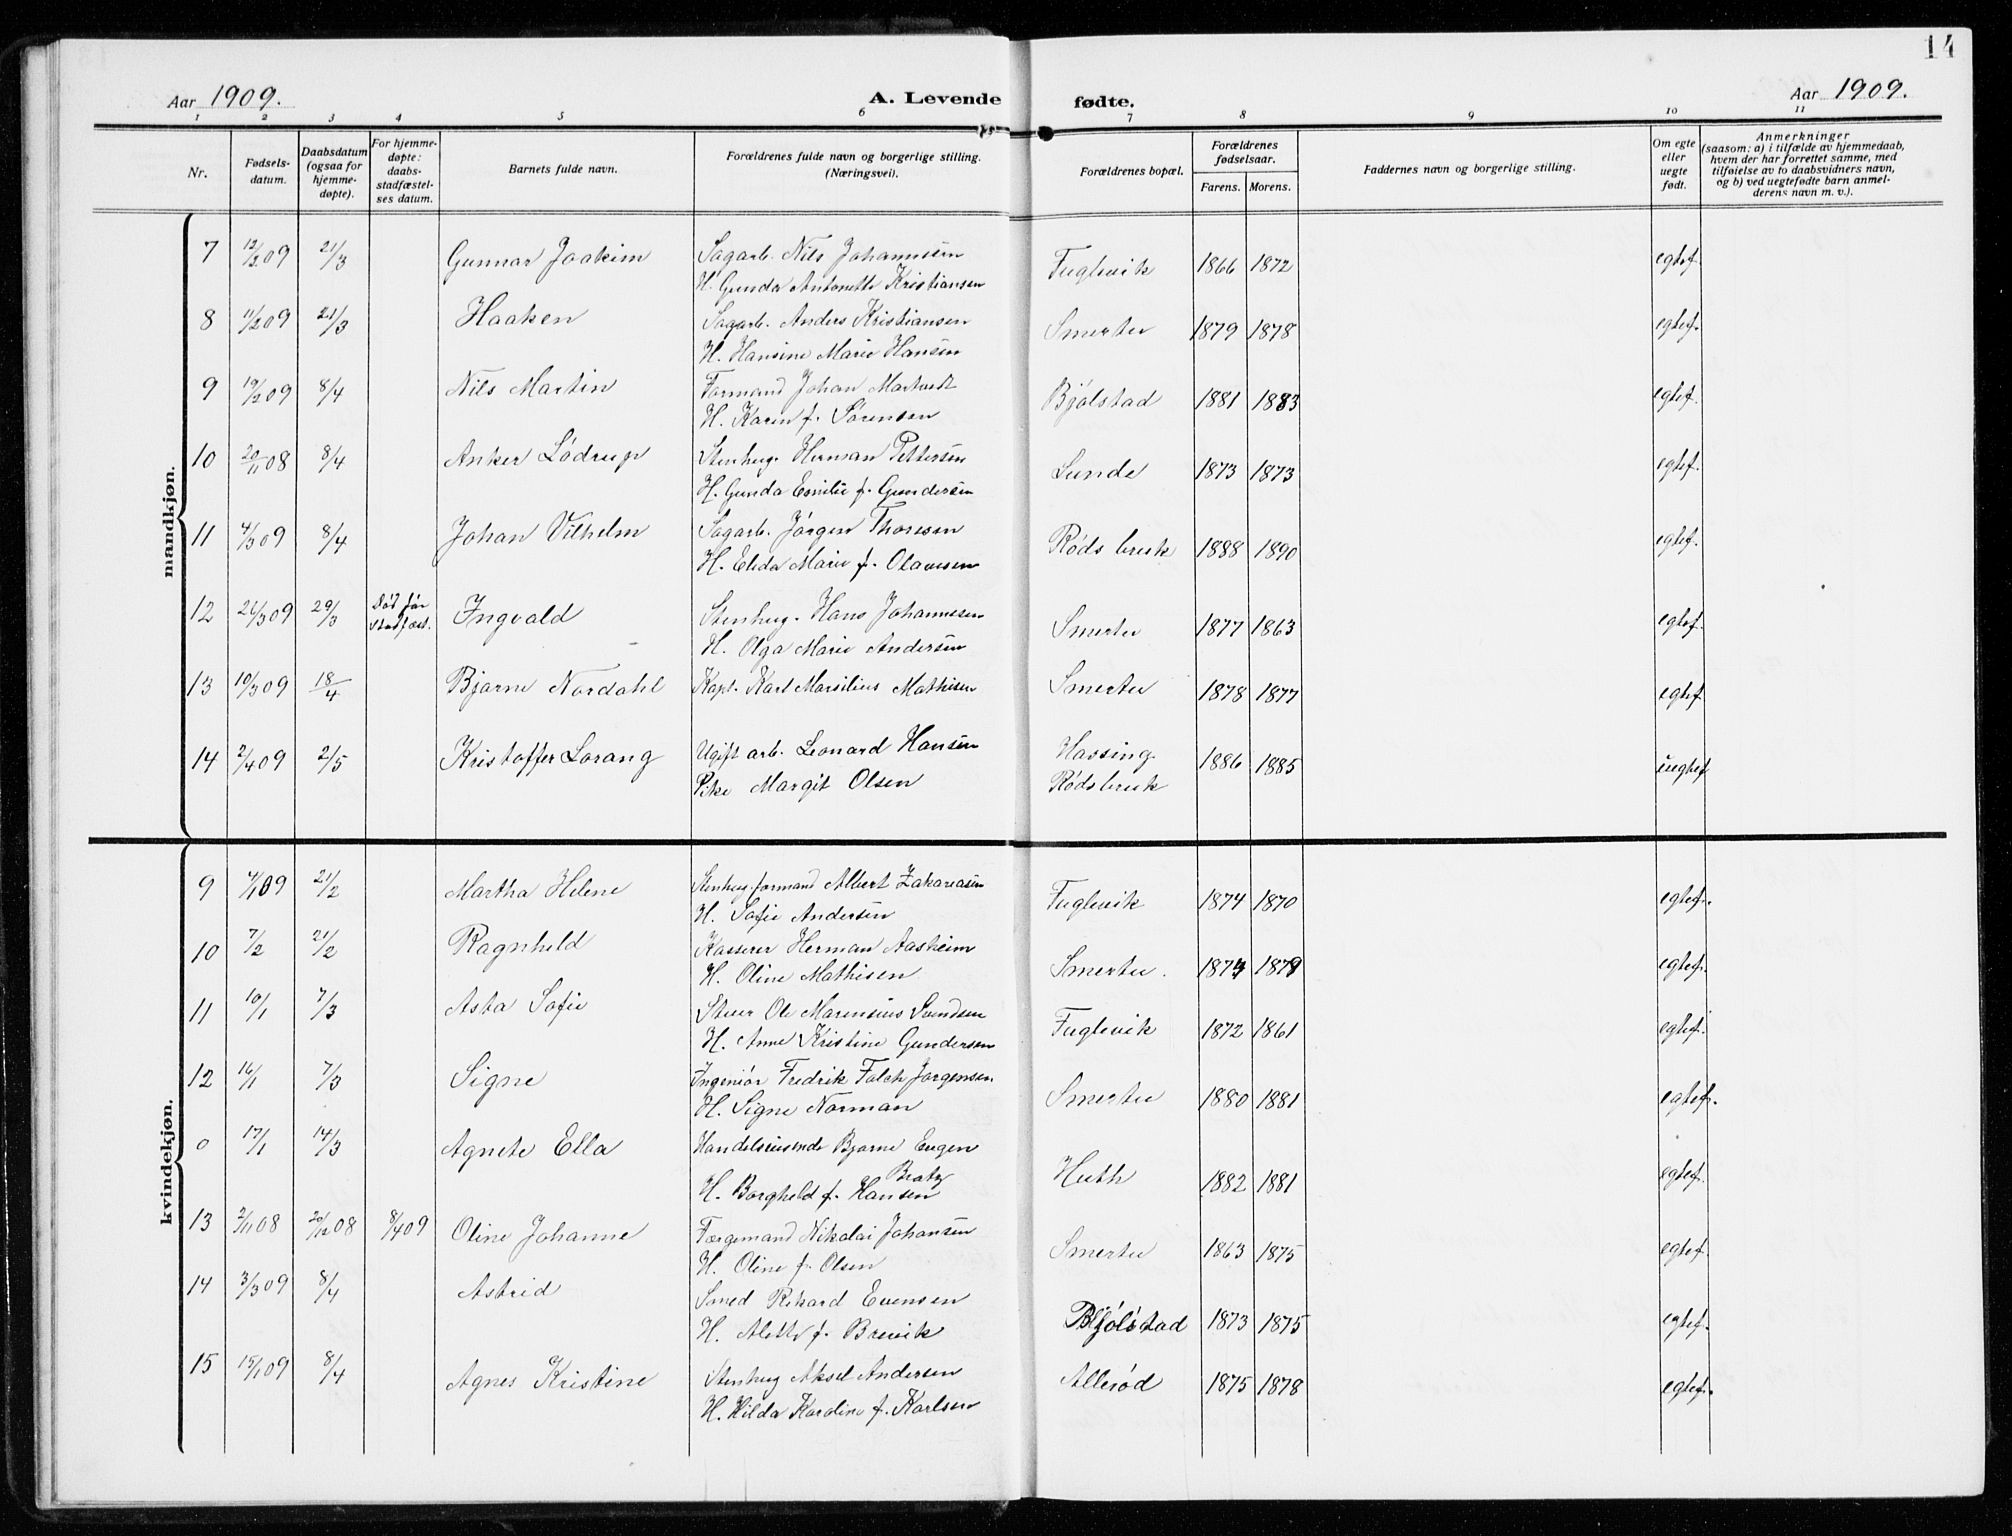 14
Aar 1909. A. Levende fødte. Aar 1909.
1 2 3 4 5 6 7 8 9 10 11
Nr. Fødsels-datum. Daabsdatum (ogsaa for hjemme-døpte). For hjemme-døpte: daabs-stadfæstel-ses datum. Barnets fulde navn. Forældrenes fulde navn og borgerlige stilling. (Næringsvei). Forældrenes bopæl. Forældrenes fødselsaar. Farens. Morens. Faddernes navn og borgerlige stilling. Om egte eller uegte født. Anmerkninger (saasom: a) i tilfælde av hjemmedaab, hvem der har forrettet samme, med tilføielse av to daabsvidners navn, og b) ved uegtefødte barn anmel-derens navn m. v.).
mandkjøn.
7 12/2 09 21/3 Gunnar Joakim Sagarb. Nils Johannesen Fuglevik 1866 1872 egtef.
H. Gunda Antonette Kristiansen
8 11/2 09 21/3 Haaken Sagarb. Anders Kristiansen Smertu 1879 1878 egtef.
H. Hansine Marie Hansen
9 19/2 09 8/4 Nils Martin Formand Johan Bjølstad 1881 1883 egtef.
H. Karin f. Sørensen
10 20/11 08 8/4 Anker Lødrup Stenhug. Herman Pettersen Lunde 1873 1873 egtef.
H. Gunda Emilie f. Gundersen
11 4/3 09 8/4 Johan Vilhelm Sagarb. Jörgen Thoresen Røds bruk 1888 1890 egtef.
H. Elida Marie f. Olavesen
12 21/3 09 29/3 Død før Stadfæst. Ingvald Stenhug. Hans Johannesen Smertu 1877 1863 egtef.
H. Olga Marie Andersen
13 10/3 09 18/4 Bjarne Nordahl Kapt. Karl Marsilius Mathisen Smertu 1878 1877 egtef.
14 2/4 09 2/5 Kristoffer Lorang Ugift arb. Leonard Hansen Hassing. 1886 1885 uegtef
Pike Margit Olsen Rødsbruk
kvindekjøn.
9 4/1 09 21/2 Martha Helene Stenhug. formand Albert Zakariasen Fuglevik 1874 1870 egtef.
H. Sofie Andersen
10 7/2 21/2 Ragnhild Kasserer Herman Aasheim Smertu. 1874 1879 egtef.
H. Oline Mathisen
11 10/1 7/3 Asta Sofie Ole Marensius Svendsen Fuglevik 1872 1861 egtef.
H. Anne Kristine Gundersen
12 16/1 7/3 Signe Ingeniør Fredrik Falch Jørgensen Smertu 1880 1881 egtef.
H. Signe Norman
0 17/1 14/3 Agnete Ella Handelsreisende Bjarne Eugen Huth 1882 1881 egtef.
Bratz
H. Borghild f. Hansen
13 2/11 08 20/12 08 8/4 09 Oline Johanne Færgemand Nikolai Johansen Smertu 1863 1875 egtef.
H. Oline f. Olsen
14 3/3 09 8/4 Astrid Smed Rikard Evensen Bjølstad 1873 1875 egtef.
H. Alette f. Brevik
15 15/1 09 8/4 Agnes Kristine Stenhug Aksel Andersen Allerød 1875 1878 egtef.
H. Hilda Karoline f. Karlsen